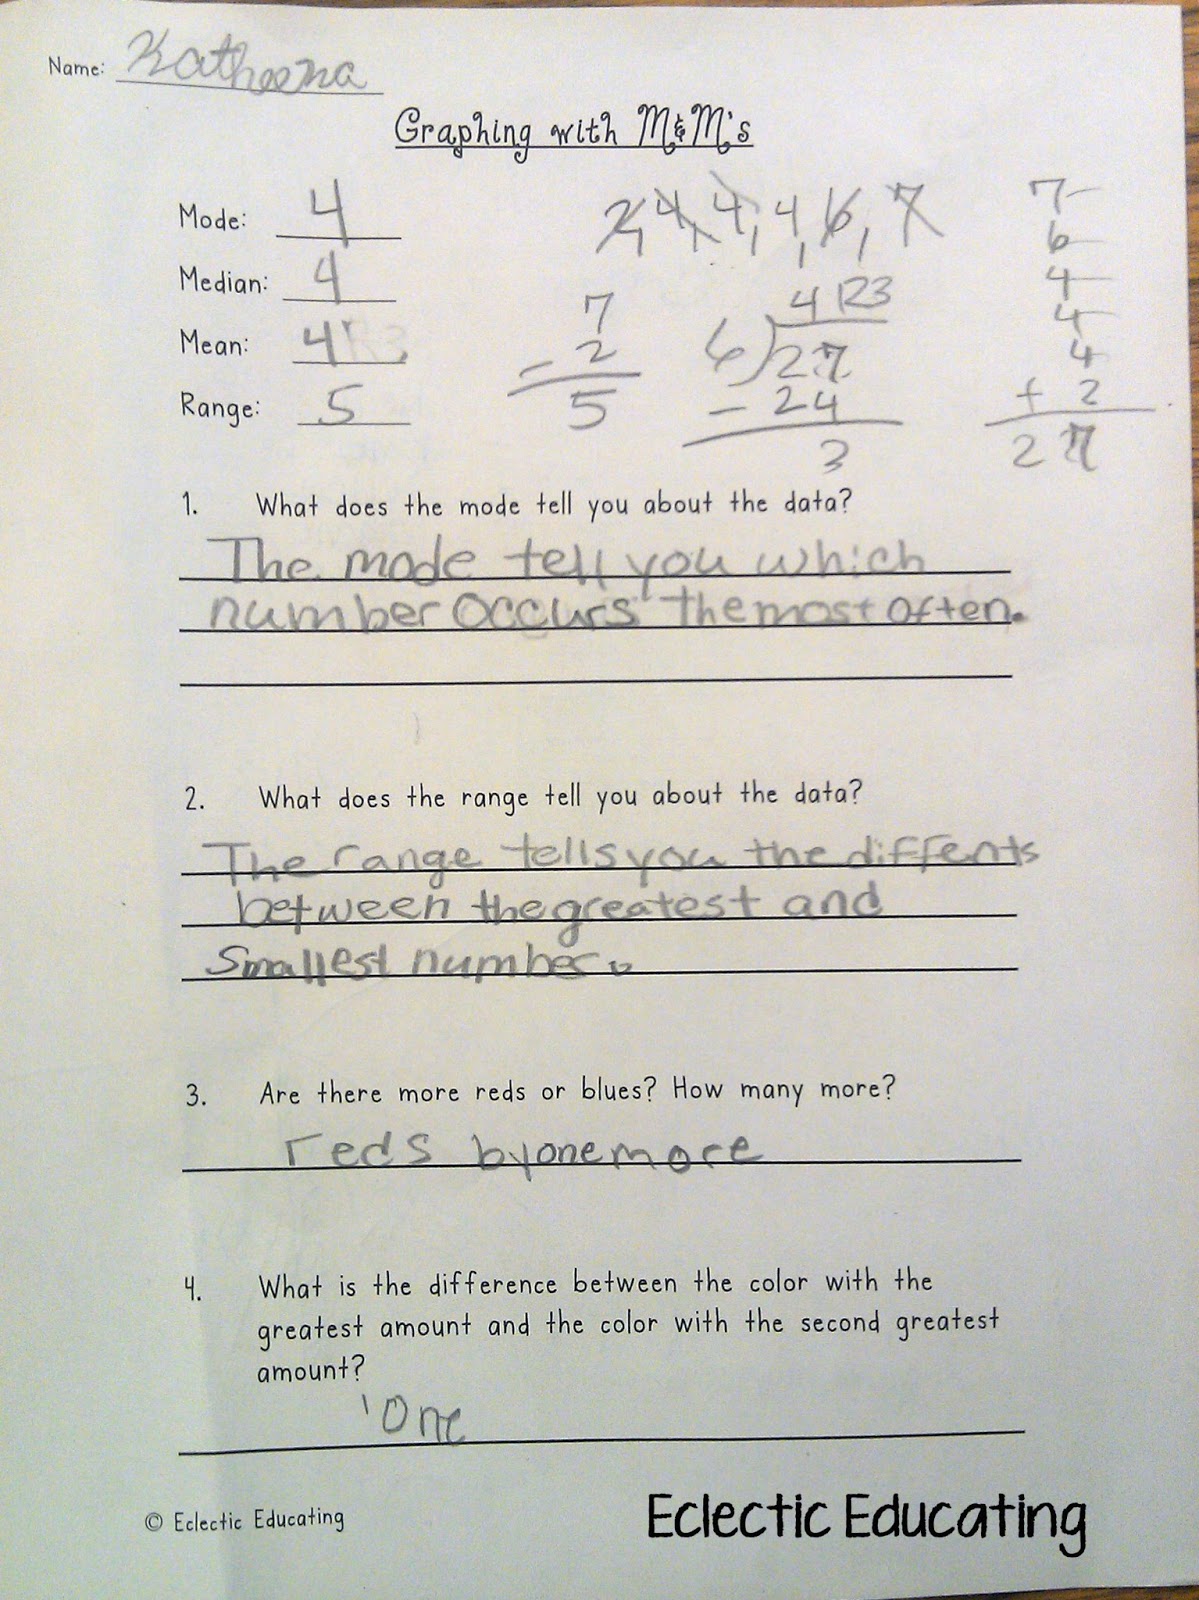 Name: Katheena
Graphing with M&M's
Mode: 4
Median: 4
Mean: 4
Range: 5
2, 4, 4, 4, 6, 7
7
- 2
5
4 R3
6)27
- 24
3
7
6
4
4
4
+ 2
27
1. What does the mode tell you about the data?
The mode tell you which
number occurs the most often.
2. What does the range tell you about the data?
The range tells you the diffents
between the greatest and
smallest number.
3. Are there more reds or blues? How many more?
reds by one more
4. What is the difference between the color with the
greatest amount and the color with the second greatest
amount?
One
© Eclectic Educating
Eclectic Educating